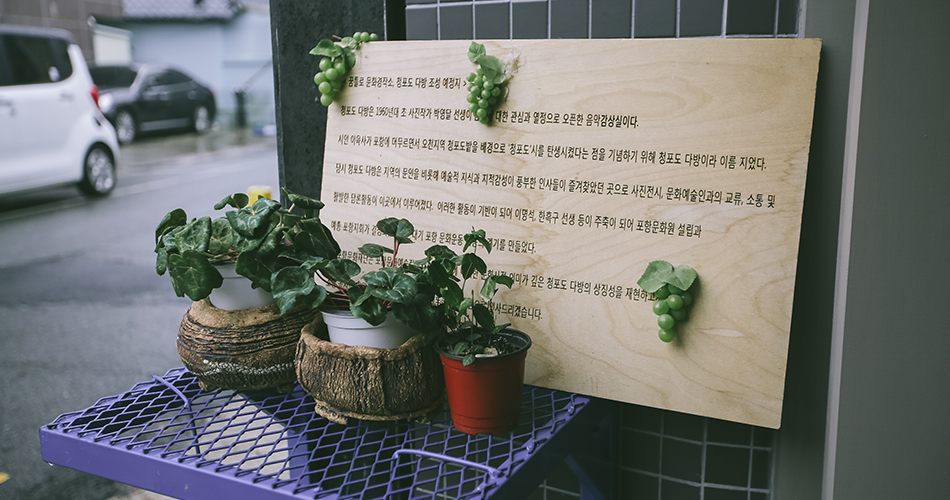 꿈틀로 문화경작소, 청포도 다방 조성 예정지 >
청포도 다방은 1960년대 초 사진작가 박영달 선생이 대한 관심과 열정으로 오픈한 음악감상실이다.
시인 이육사가 포항에 머무르면서 오천지역 청포도밭을 배경으로 '청포도'시를 탄생시켰다는 점을 기념하기 위해 청포도 다방이라 이름 지었다.
당시 청포도 다방은 지역의 문인을 비롯해 예술적 지식과 지적감성이 풍부한 인사들이 즐겨찾았던 곳으로 사진전시, 문화예술인과의 교류, 소통 및
활발한 담론활동이 이곳에서 이루어졌다. 이러한 활동이 기반이 되어 이명석, 한흑구 선생 등이 주축이 되어 포항문화원 설립과
예총 포항지회가 포항 문화운동 를 만들었다.
의미가 깊은 청포도 다방의 상징성을 재현하고